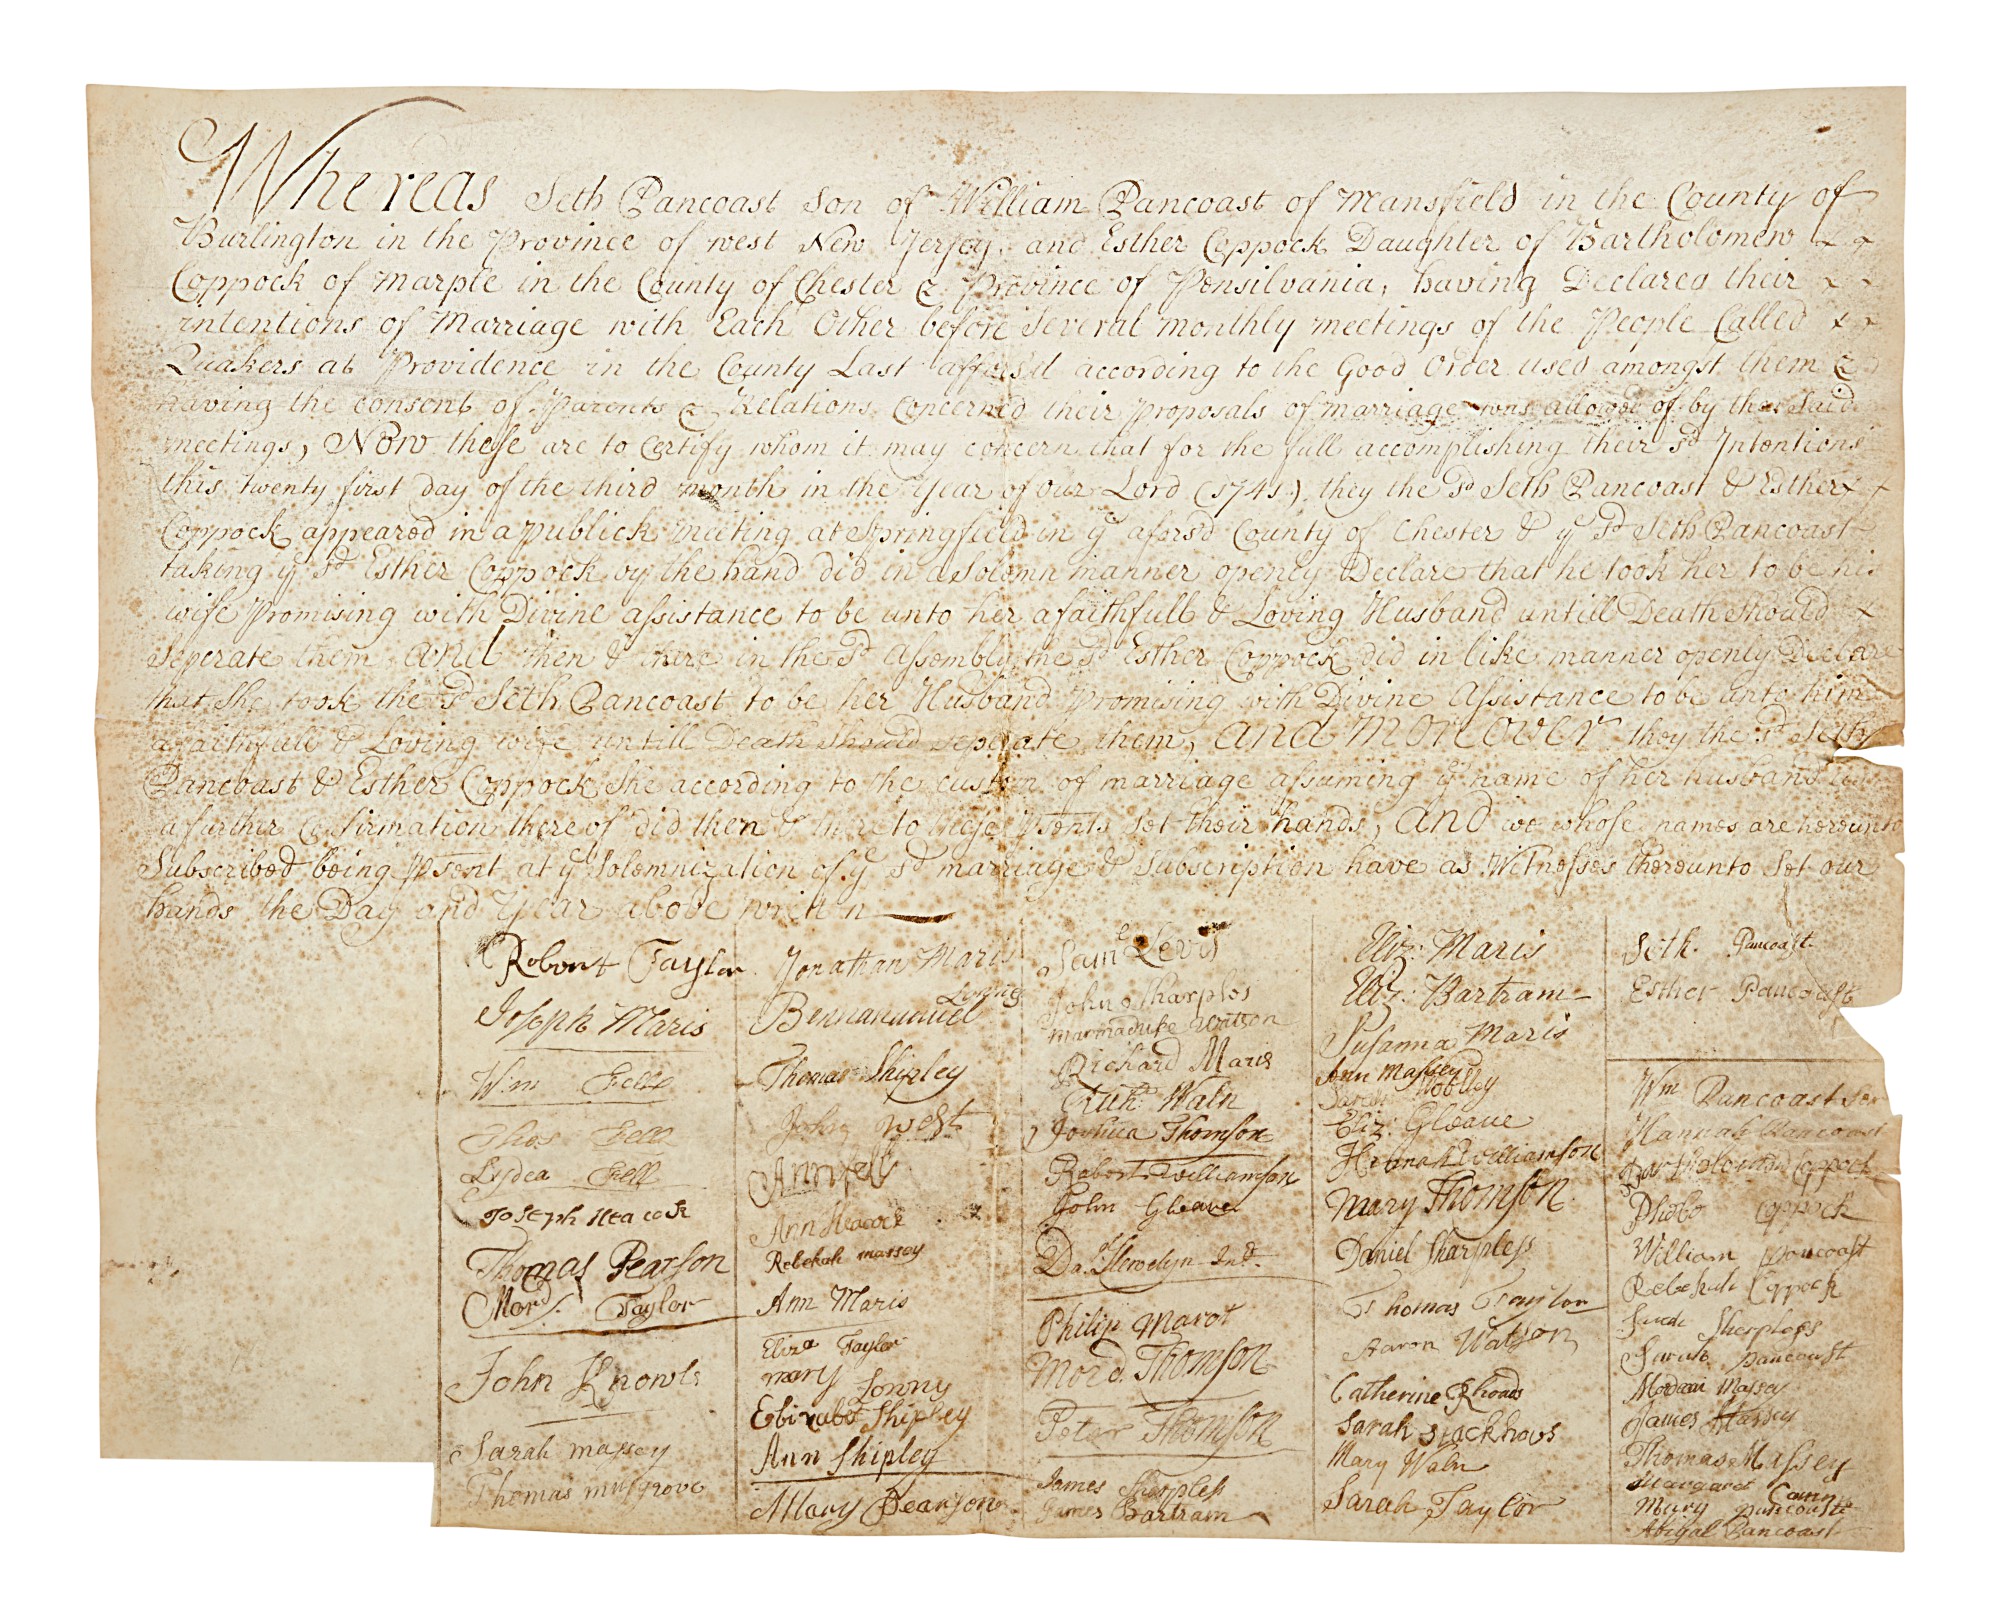 Whereas Seth Pancoast Son of William Pancoast of Mansfield in the County of
Burlington in the Province of west New Jersey, and Esther Coppock Daughter of Bartholomew
Coppock of Marple in the County of Chester & Province of Pensilvania, having Declared their
intentions of Marriage with Each Other before Several monthly meetings of the People Called
Quakers at Providence in the County Last affors'd according to the Good Order used amongst them &
having the consent of Parents & Relations Concerned their Proposals of marriage was allowed of by the Said
meetings, Now these are to Certify whom it may concern that for the full accomplishing their sd Intentions
this twenty first day of the third month in the Year of our Lord (1741) they the sd Seth Pancoast & Esther
Coppock appeared in a publick meeting at Springfield in ye afors'd County of Chester & ye sd Seth Pancoast
taking ye sd Esther Coppock by the hand did in a Solemn manner openly Declare that he took her to be his
wife Promising with Divine assistance to be unto her a faithfull & Loving Husband untill Death Should
Seperate them and then & there in the sd Assembly the sd Esther Coppock did in like manner openly Declare
that She took the sd Seth Pancoast to be her Husband Promising with Divine Assistance to be unto him
a faithfull & Loving wife untill Death Should Seperate them, and moreover they the sd Seth
Pancoast & Esther Coppock She according to the custom of marriage assuming ye name of her husband
a further Confirmation thereof did then & there to these Psents Set their hands, and we whose names are hereunto
Subscribed being Psent at ye Solemnization of ye sd marriage & Subscription have as Witnesses thereunto Set our
hands the Day and Year above writen
Robert Taylor
Joseph Maris
Wm Fell
Thos Fell
Lydea Fell
Joseph Heacock
Thomas Pearson
Mord: Taylor
John Knowls
Sarah massey
Thomas musgrove
Jonathan Maris
Bennanuel Lownes
Thomas Shipley
John West
Ann Fell
Ann Heacock
Rebekah massey
Ann Maris
Eliza Taylor
mary Lowny
Elizabet Shipley
Ann Shipley
Mary Pearson
Same Levis
John Sharples
Marmaduke Watson
Richard Maris
Richd Waln
Joshua Thomson
Robert Williamson
John Gleave
Da: Llewelyn
Philip Marot
Mord. Thomson
Peter Thomson
James Sharpless
James Bartram
Eliz: Maris
Eliz: Bartram
Susanna Maris
Ann Massey
Sarah
Eliz: Gleave
Hannah Williamson
Mary Thomson
Daniel Sharpless
Thomas Taylor
Aaron Watson
Catherine Rhoads
Sarah Stackhous
Mary Waln
Sarah Taylor
Seth Pancoast
Esther Pancoast
Wm Pancoast Ser
Hannah Pancoast
Bartholomew Coppock
Phebe Coppock
William Pancoast
Rebekah Coppock
Sharples
Sarah Pancoast
Mordecai Massey
James Massey
Thomas Massey
Margaret Cann
Mary Pancoast
Abigal Pancoast